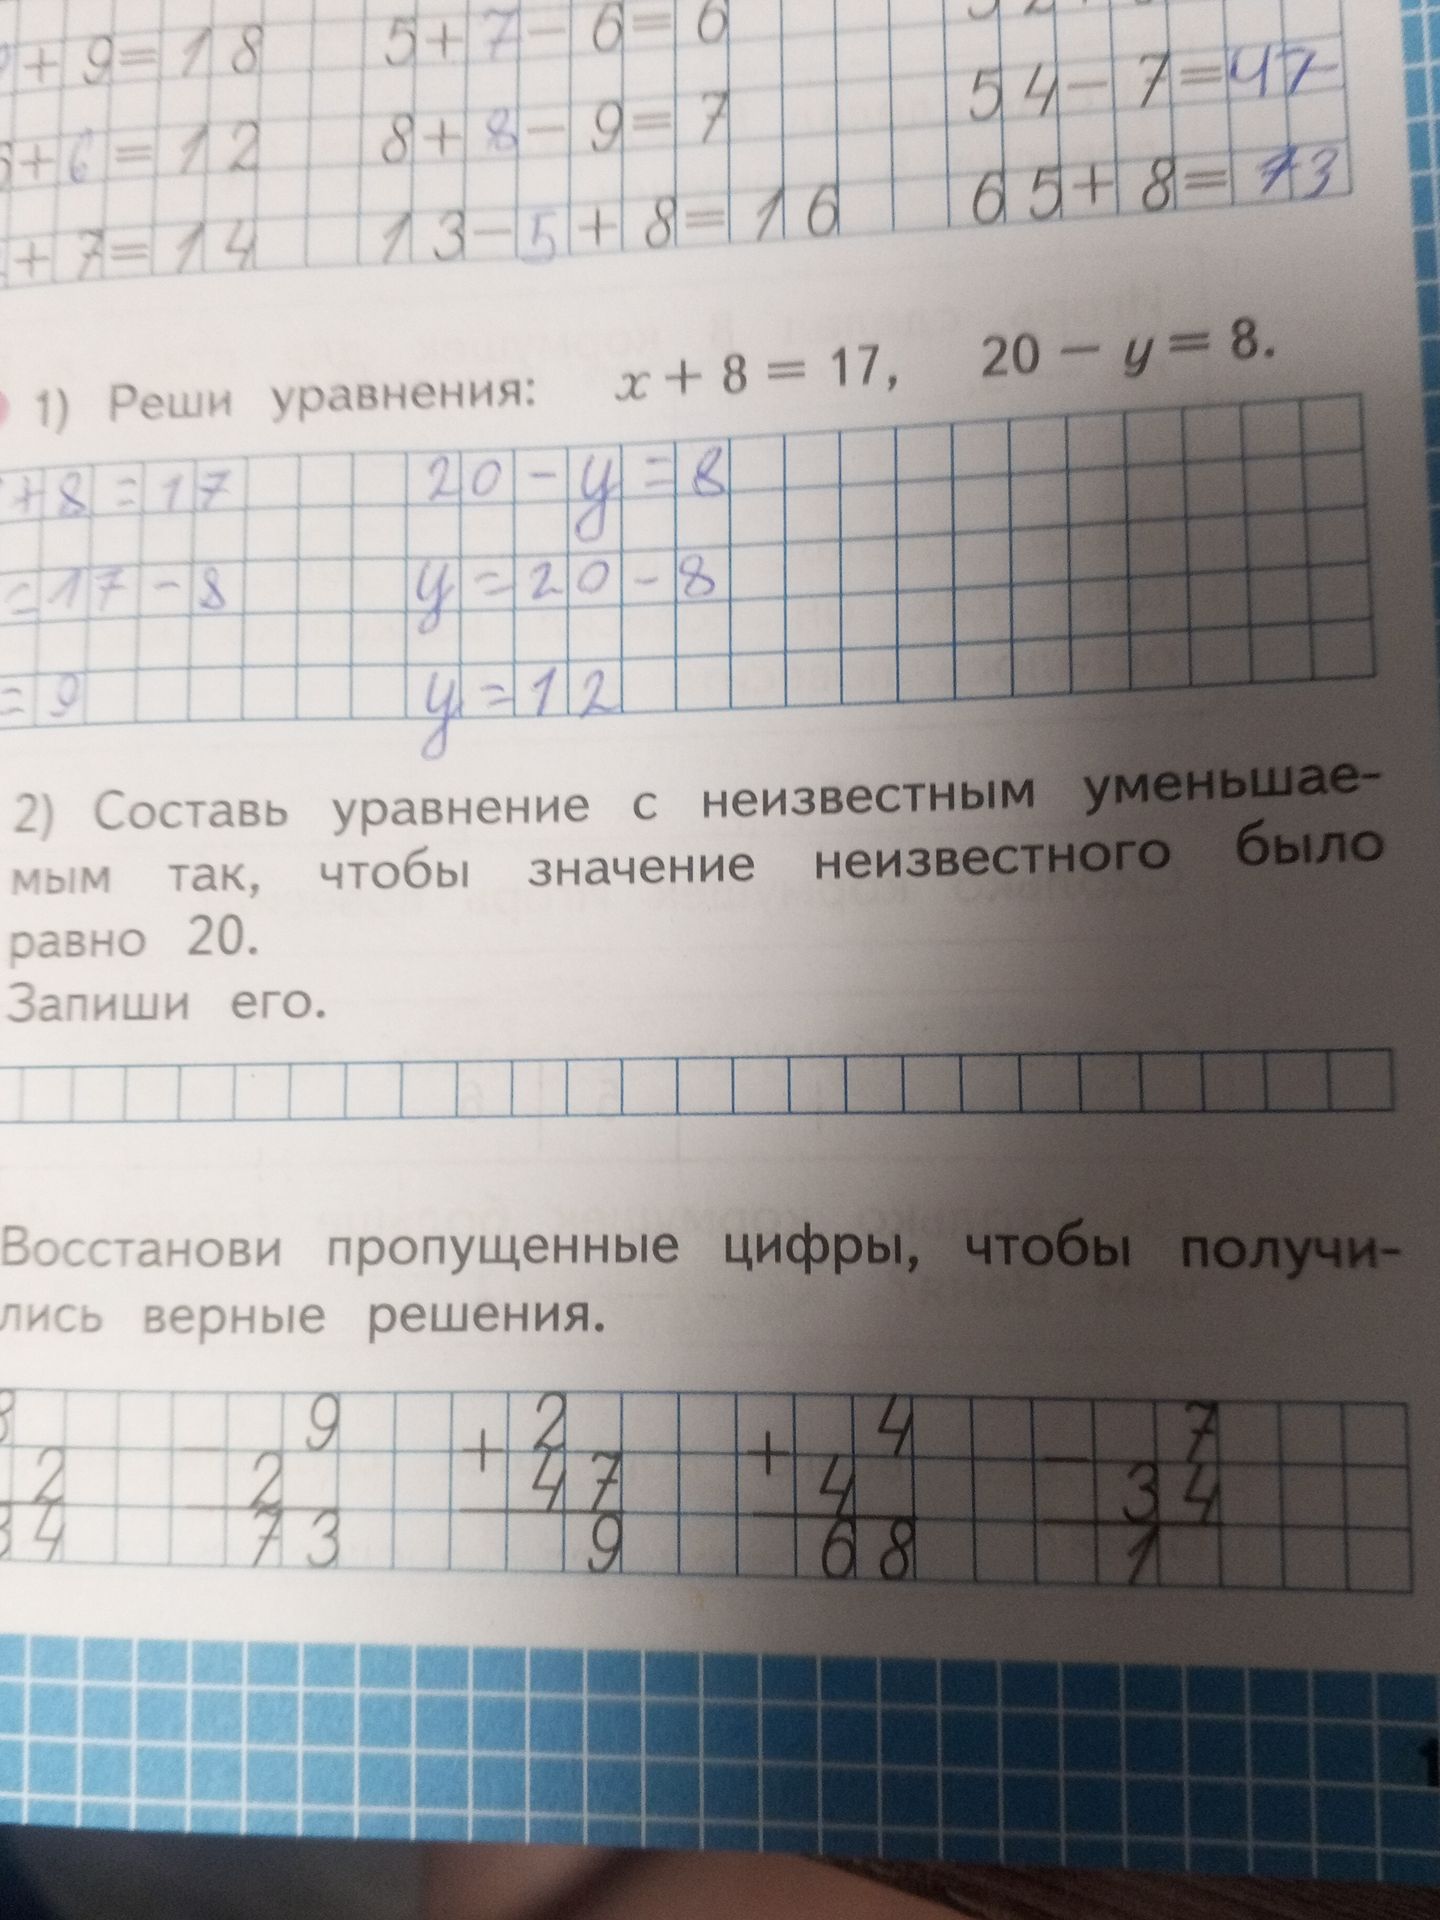 + 9 = 18 5 + 7 - 6 = 6
54 - 7 = 47
+ 6 = 12 8 + 8 - 9 = 7
65 + 8 = 73
+ 7 = 14 13 - 5 + 8 = 16
1) Реши уравнения: x + 8 = 17, 20 − y = 8.
+ 8 = 17 20 - y = 8
= 17 - 8 y = 20 - 8
= 9 y = 12
2) Составь уравнение с неизвестным уменьшае-
мым так, чтобы значение неизвестного было
равно 20.
Запиши его.
Восстанови пропущенные цифры, чтобы получи-
лись верные решения.
− 9 + 2 + 4 − 7
2 2 4 7 4 3 4
4 7 3 9 6 8 1
1